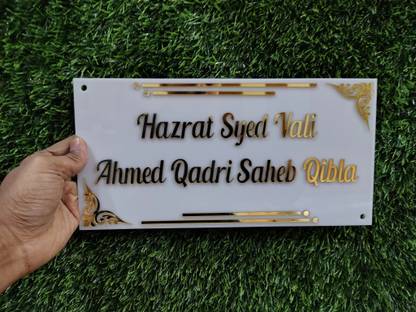 Hazrat Syed Vali
Ahmed Qadri Saheb Qibla